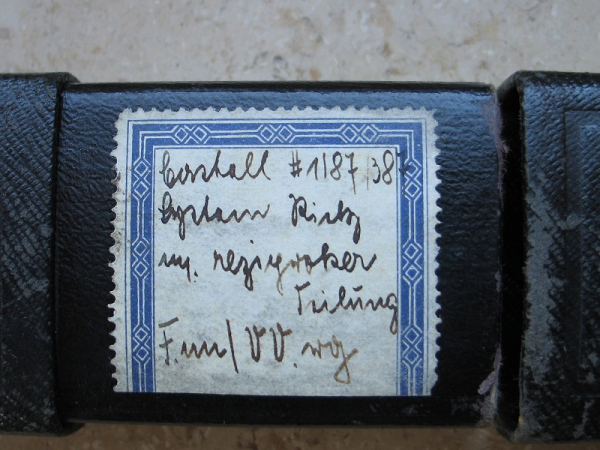 Castell # 1/87/387
System Rietz
m. reziproker
Teilung
F.m/VV.